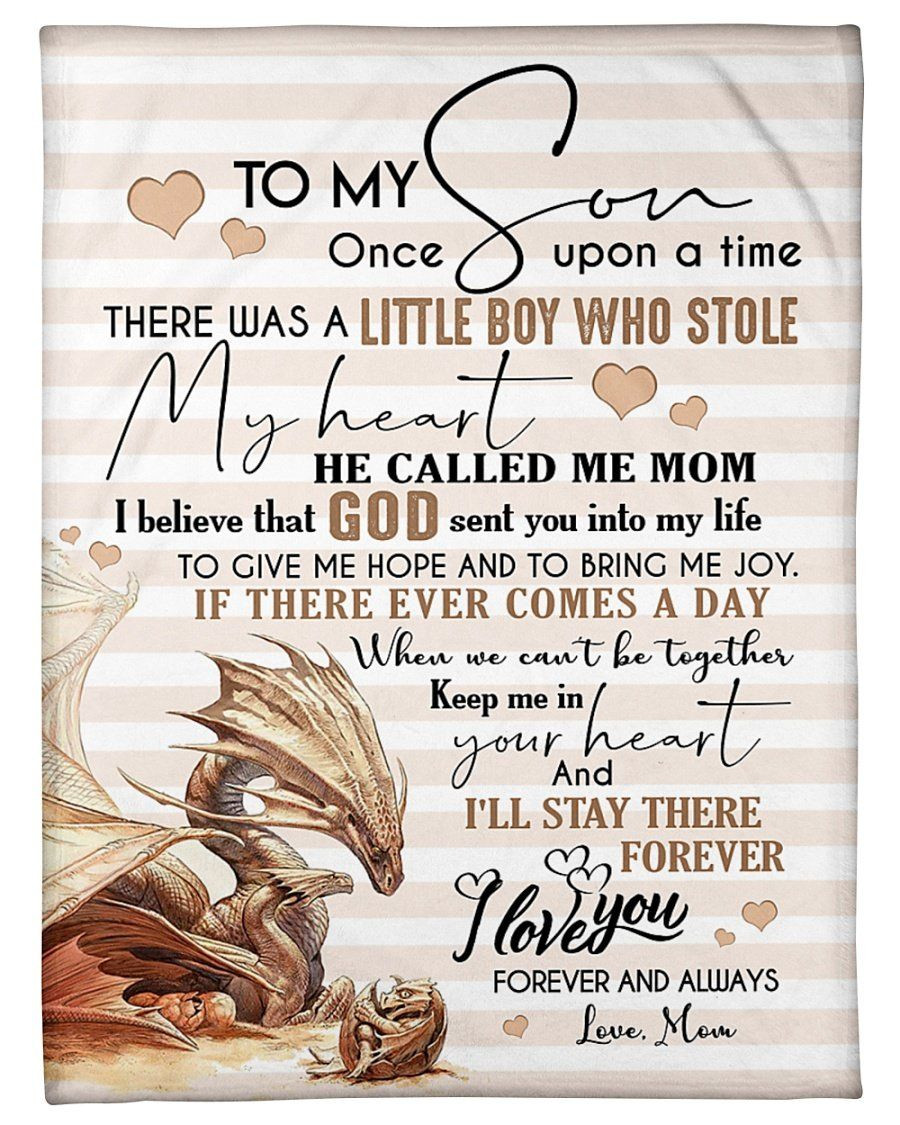 TO MY Son
Once upon a time
THERE WAS A LITTLE BOY WHO STOLE
My heart
HE CALLED ME MOM
I believe that GOD sent you into my life
TO GIVE ME HOPE AND TO BRING ME JOY.
IF THERE EVER COMES A DAY
When we can't be together
Keep me in
your heart
And
I'LL STAY THERE
FOREVER
I love you
FOREVER AND ALWAYS
Love, Mom